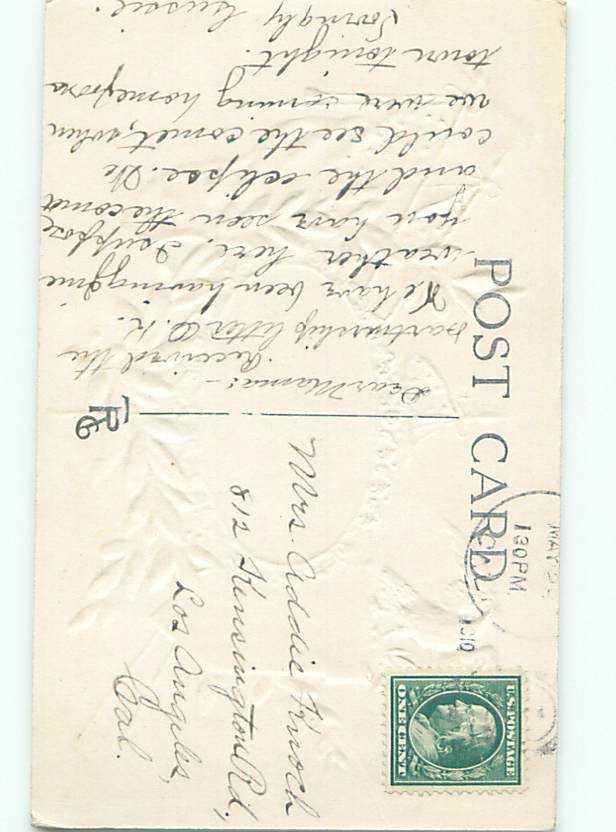 POST CARD
Dear Mama:-
Received the
partnership letter O.K.
We have been having fine
weather here. I suppose
you have seen the comet
and the eclipse. We
could see the comet, when
we were coming home from
town tonight.
Lovingly Gussie.
MAY 2
130 PM
1910
U.S. POSTAGE
ONE CENT
Mrs. Addie Knoch
812 Kensington Rd,
Los Angeles,
Cal.